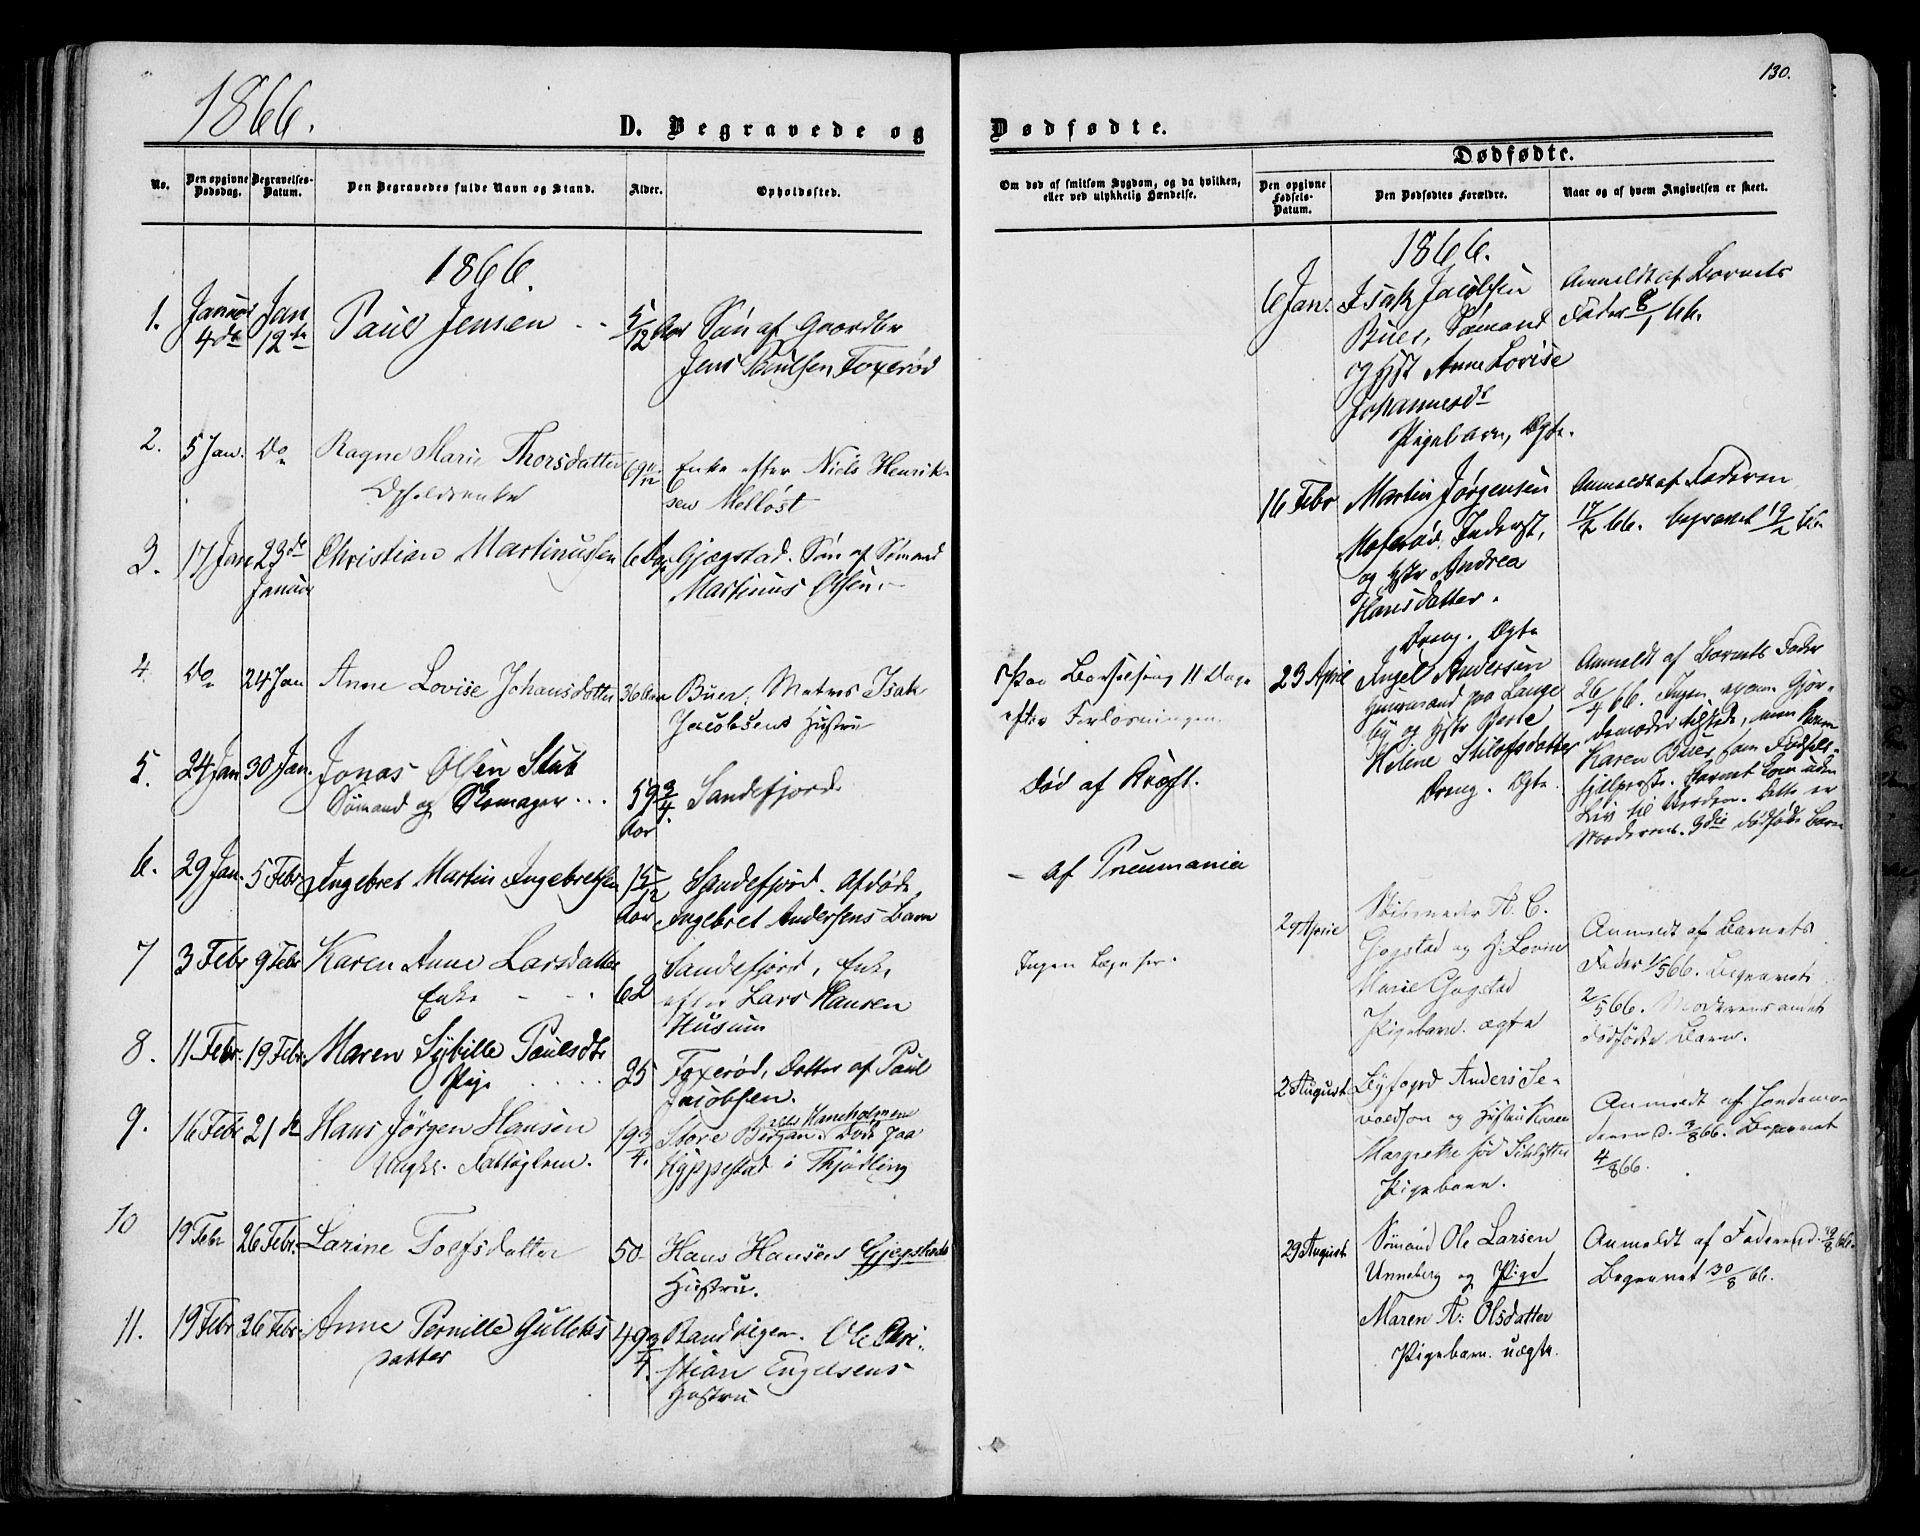 130.
1866.
D. Begravede og Dødfødte.
No.
Den opgivne Dødsdag.
Begravelses-Datum.
Den Begravedes fulde Navn og Stand.
Alder.
Opholdssted.
Om død af smitsom Sygdom, og da hvilken, eller ved ulykkelig Hændelse.
Dødfødte.
Den opgivne Fødsels-Datum.
Den Dødfødtes Forældre.
Naar og af hvem Angivelsen er skeet.
1866.
1. Januar 4de Jan 12te Paul Jensen 5/12 Aar Søn af Gaardbr
Jens Paulsen Foxerød
2. 5 Jan. Do Ragne Marie Thorsdatter 69 Enke efter Niels Henrik-
sen Melløst
3. 17 Jan 23de Januar Christian Martinussen 6 Dage Gjogstad. Søn af Sømand
Martinus Olsen.
4. Do 24 Jan Anne Lovise Johansdatter 36 Buer. Matros Isak
Jacobsens Hustru
Paa Barselseng 11 Dage
efter Forløsningen.
5. 24 Jan 30 Jan. Jonas Olsen Stub
Sømand og Skomager... 59 3/4 Aar Sandefjord
Død af Kræft.
6. 29 Jan. 5 Febr Ingebret Martin Ingebretsen 15/12 Aar Sandefjord. Afdøde
Ingebret Andersens Barn
- af Pneumania
7 3 Febr 9 Febr Karen Anne Larsdatter
Enke 62 Sandefjord, Enke
efter Lars Hansen
Husum
Ingen Læge
8. 11 Febr. 19 Febr. Maren Sybille Paulsdtr
Pige 25 Foxerød, Datter af Paul
Jacobsen.
9. 16 Febr 21de Hans Jørgen Hansen
Ungk. Fattiglem. 19 3/4. Store Bergan. Død paa
i Thjødling
10 19 Febr 26 Febr. Larine Tolfsdatter 50. Hans Hansens Gjogstads
Hustru.
11. 19 Febr 26 Febr. Anne Pernille Gulleks
datter 49 3/4. Ranvigen. Ole Chri-
stian Engelsens
Hustru
1866.
6 Jan. Isak Jacobsen
Buer, Sømand
og Hst Anne Lovise
Johannesdr
Pigebarn, Ægte.
Anmeldt af Barnets
Fader 8/1 66.
16 Febr Martin Jørgensen
Moserød. Inderst,
og Hstr Andrea
Hansdatter.
Dreng. Ægte
Anmeldt af Faderen
17/2 66. begravet 19/2 66
23 April Engel Andersen
Huusmand paa Lange
by og Hstr Berte
Helene Stilofsdatter
Dreng. Ægte.
Anmeldt af Barnets Fader
26/4 66. Ingen exam. Gjor-
demoder tilstede, men Karen
Karen Buer som Fødsels-
hjælperske. Barnet kom uden
Liv til Verden. Dette er
Moderens 3die dødfødte Barn
29 April A. C.
Gogstad og H. Lovise
Marie Gogstad
Pigebarn. ægte
Anmeldt af Barnets
Fader 1/5 66. Begravet
2/5 66. Moderens andet
dødfødte Barn.
2 August Byfoged Anders Se-
voldson og Hustru Karen
Margrethe fød Schlytter
Pigebarn.
Anmeldt af Jordemo-
deren d. 3/8 66. Begravet
4/8 66.
29 August Sømand Ole Larsen
Unneberg og Pige
Maren A: Olsdatter
Pigebarn. uægte.
Anmeldt af Faderen d. 29/8 66.
Begravet 30/8 66.